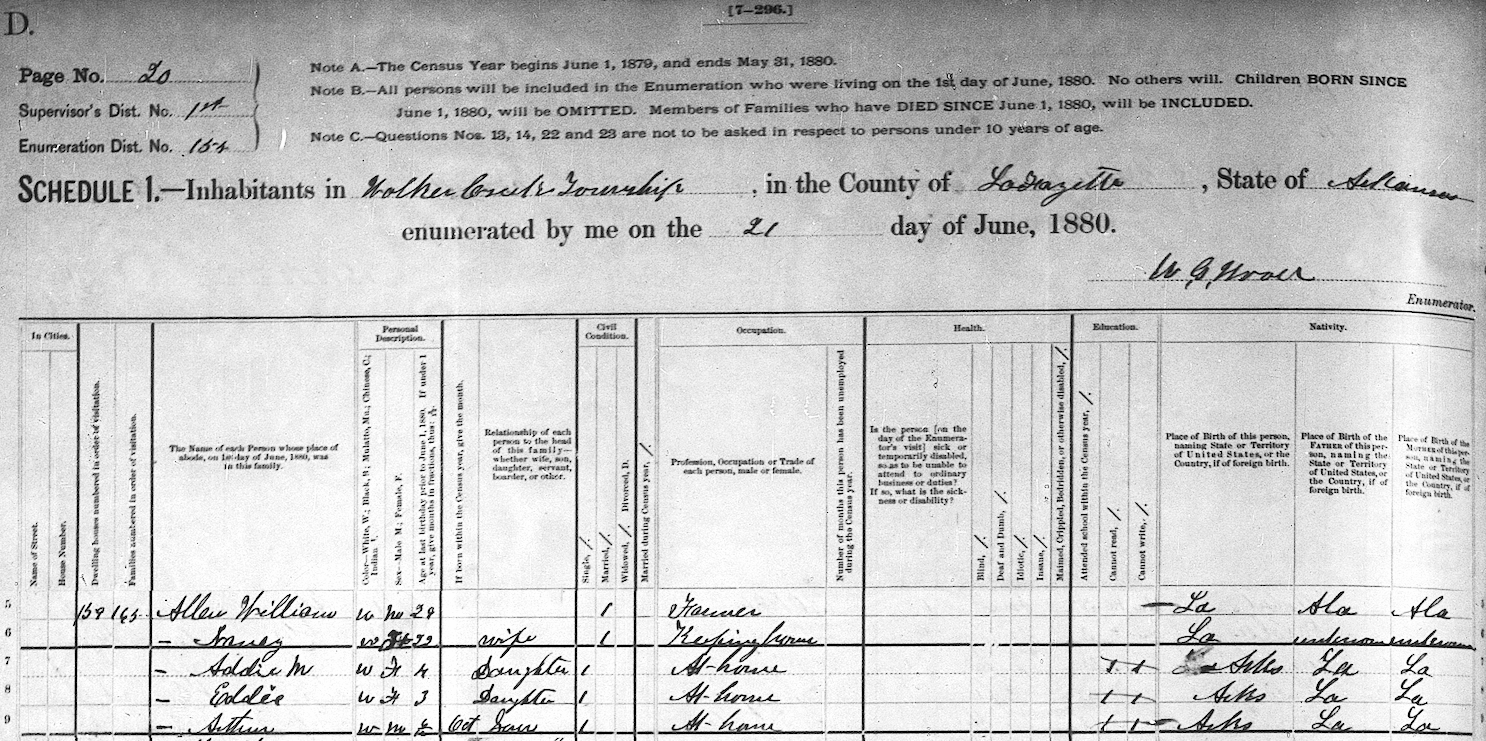 D.
[7-296.]
Page No. 20
Supervisor's Dist. No. 1st
Enumeration Dist. No.
Note A.—The Census Year begins June 1, 1879, and ends May 31, 1880.
Note B.—All persons will be included in the Enumeration who were living on the 1st day of June, 1880. No others will. Children BORN SINCE
June 1, 1880, will be OMITTED. Members of Families who have DIED SINCE June 1, 1880, will be INCLUDED.
Note C.—Questions Nos. 13, 14, 22 and 23 are not to be asked in respect to persons under 10 years of age.
SCHEDULE 1.—Inhabitants in Walker Creek Township, in the County of Lafayette, State of Arkansas
enumerated by me on the 21 day of June, 1880.
W. G.
Enumerator.
In Cities.
Name of Street.
House Number.
Dwelling houses numbered in order of visitation.
Families numbered in order of visitation.
The Name of each Person whose place of
abode, on 1st day of June, 1880, was
in this family.
Personal
Description.
Color—White, W.; Black, B.; Mulatto, Mu.; Chinese, C.;
Indian, I.
Sex—Male M.; Female, F.
Age at last birthday prior to June 1, 1880. If under 1
year, give months in fractions, thus:
If born within the Census year, give the month.
Relationship of each
person to the head
of this family—
whether wife, son,
daughter, servant,
boarder, or other.
Civil
Condition.
Single, /.
Married, /.
Widowed, /. Divorced, D.
Married during Census year, /.
Occupation.
Profession, Occupation or Trade of
each person, male or female.
Number of months this person has been unemployed
during the Census year.
Health.
Is the person [on the
day of the Enumera-
tor's visit] sick or
temporarily disabled,
so as to be unable to
attend to ordinary
business or duties?
If so, what is the sick-
ness or disability?
Blind, /.
Deaf and Dumb, /.
Idiotic, /.
Insane, /.
Maimed, Crippled, Bedridden, or otherwise disabled, /.
Education.
Attended school within the Census year, /.
Cannot read, /.
Cannot write, /.
Nativity.
Place of Birth of this person,
naming State or Territory
of United States, or the
Country, if of foreign birth.
Place of Birth of the
FATHER of this per-
son, naming the
State or Territory
of United States, or
the Country, if of
foreign birth.
Place of Birth of the
MOTHER of this per-
son, naming the
State or Territory
of United States, or
the Country, if of
foreign birth.
5 159 165 Allen William W M 29 / Farmer La Ala Ala
6 — W F 22 wife / Keeping house La unknown unknown
7 — Addie M W F 4 Daughter / At home / / Arks La La
8 — Eddie W F 3 Daughter / At home / / Arks La La
9 — Arthur W M Oct Son / At home / / Arks La La